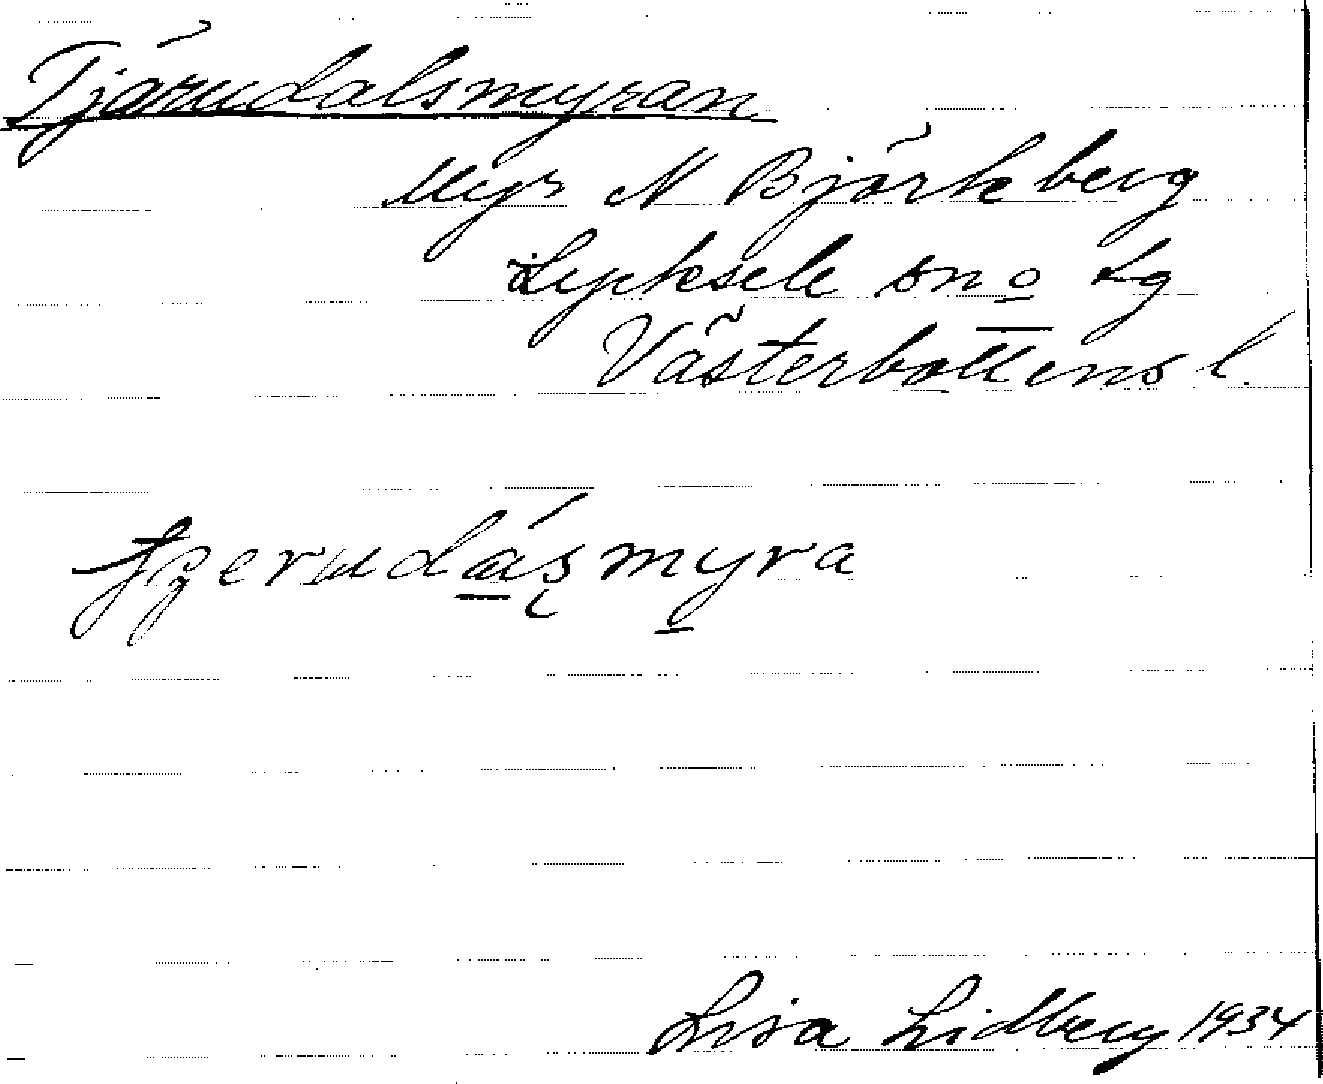 Tjärudalsmyran
Myr N Björkberg
Lycksele sn o Lg
Västerbottens l.
myra
Lisa Lidberg 1934